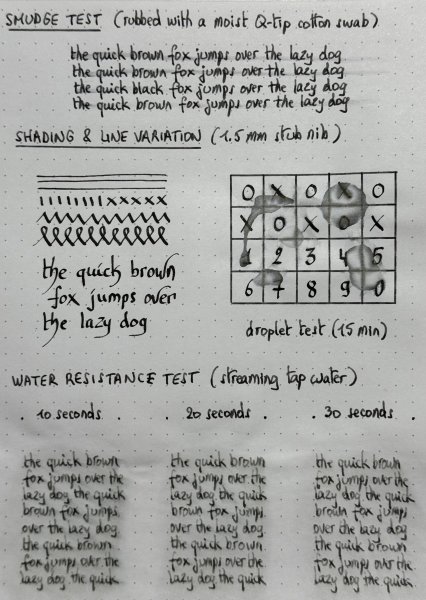 SMUDGE TEST (rubbed with a moist Q-tip cotton swab)
the quick brown fox jumps over the lazy dog
the quick brown fox jumps over the lazy dog
the quick black fox jumps over the lazy dog
the quick brown fox jumps over the lazy dog
SHADING & LINE VARIATION (1.5 mm stub nib)
the quick brown
fox jumps over
the lazy dog
O X O X O
X O X O X
1 2 3 4 5
6 7 8 9 0
droplet test (15 min)
WATER RESISTANCE TEST (streaming tap water)
. 10 seconds . 20 seconds . 30 seconds .
the quick brown
fox jumps over the
lazy dog the quick
brown fox jumps
over the lazy dog
the quick brown
fox jumps over the
lazy dog the quick
the quick brown
fox jumps over the
lazy dog the quick
brown fox jumps
over the lazy dog
the quick brown
fox jumps over the
lazy dog the quick
the quick brown
fox jumps over the
lazy dog the quick
brown fox jumps
over the lazy dog
the quick brown
fox jumps over the
lazy dog the quick